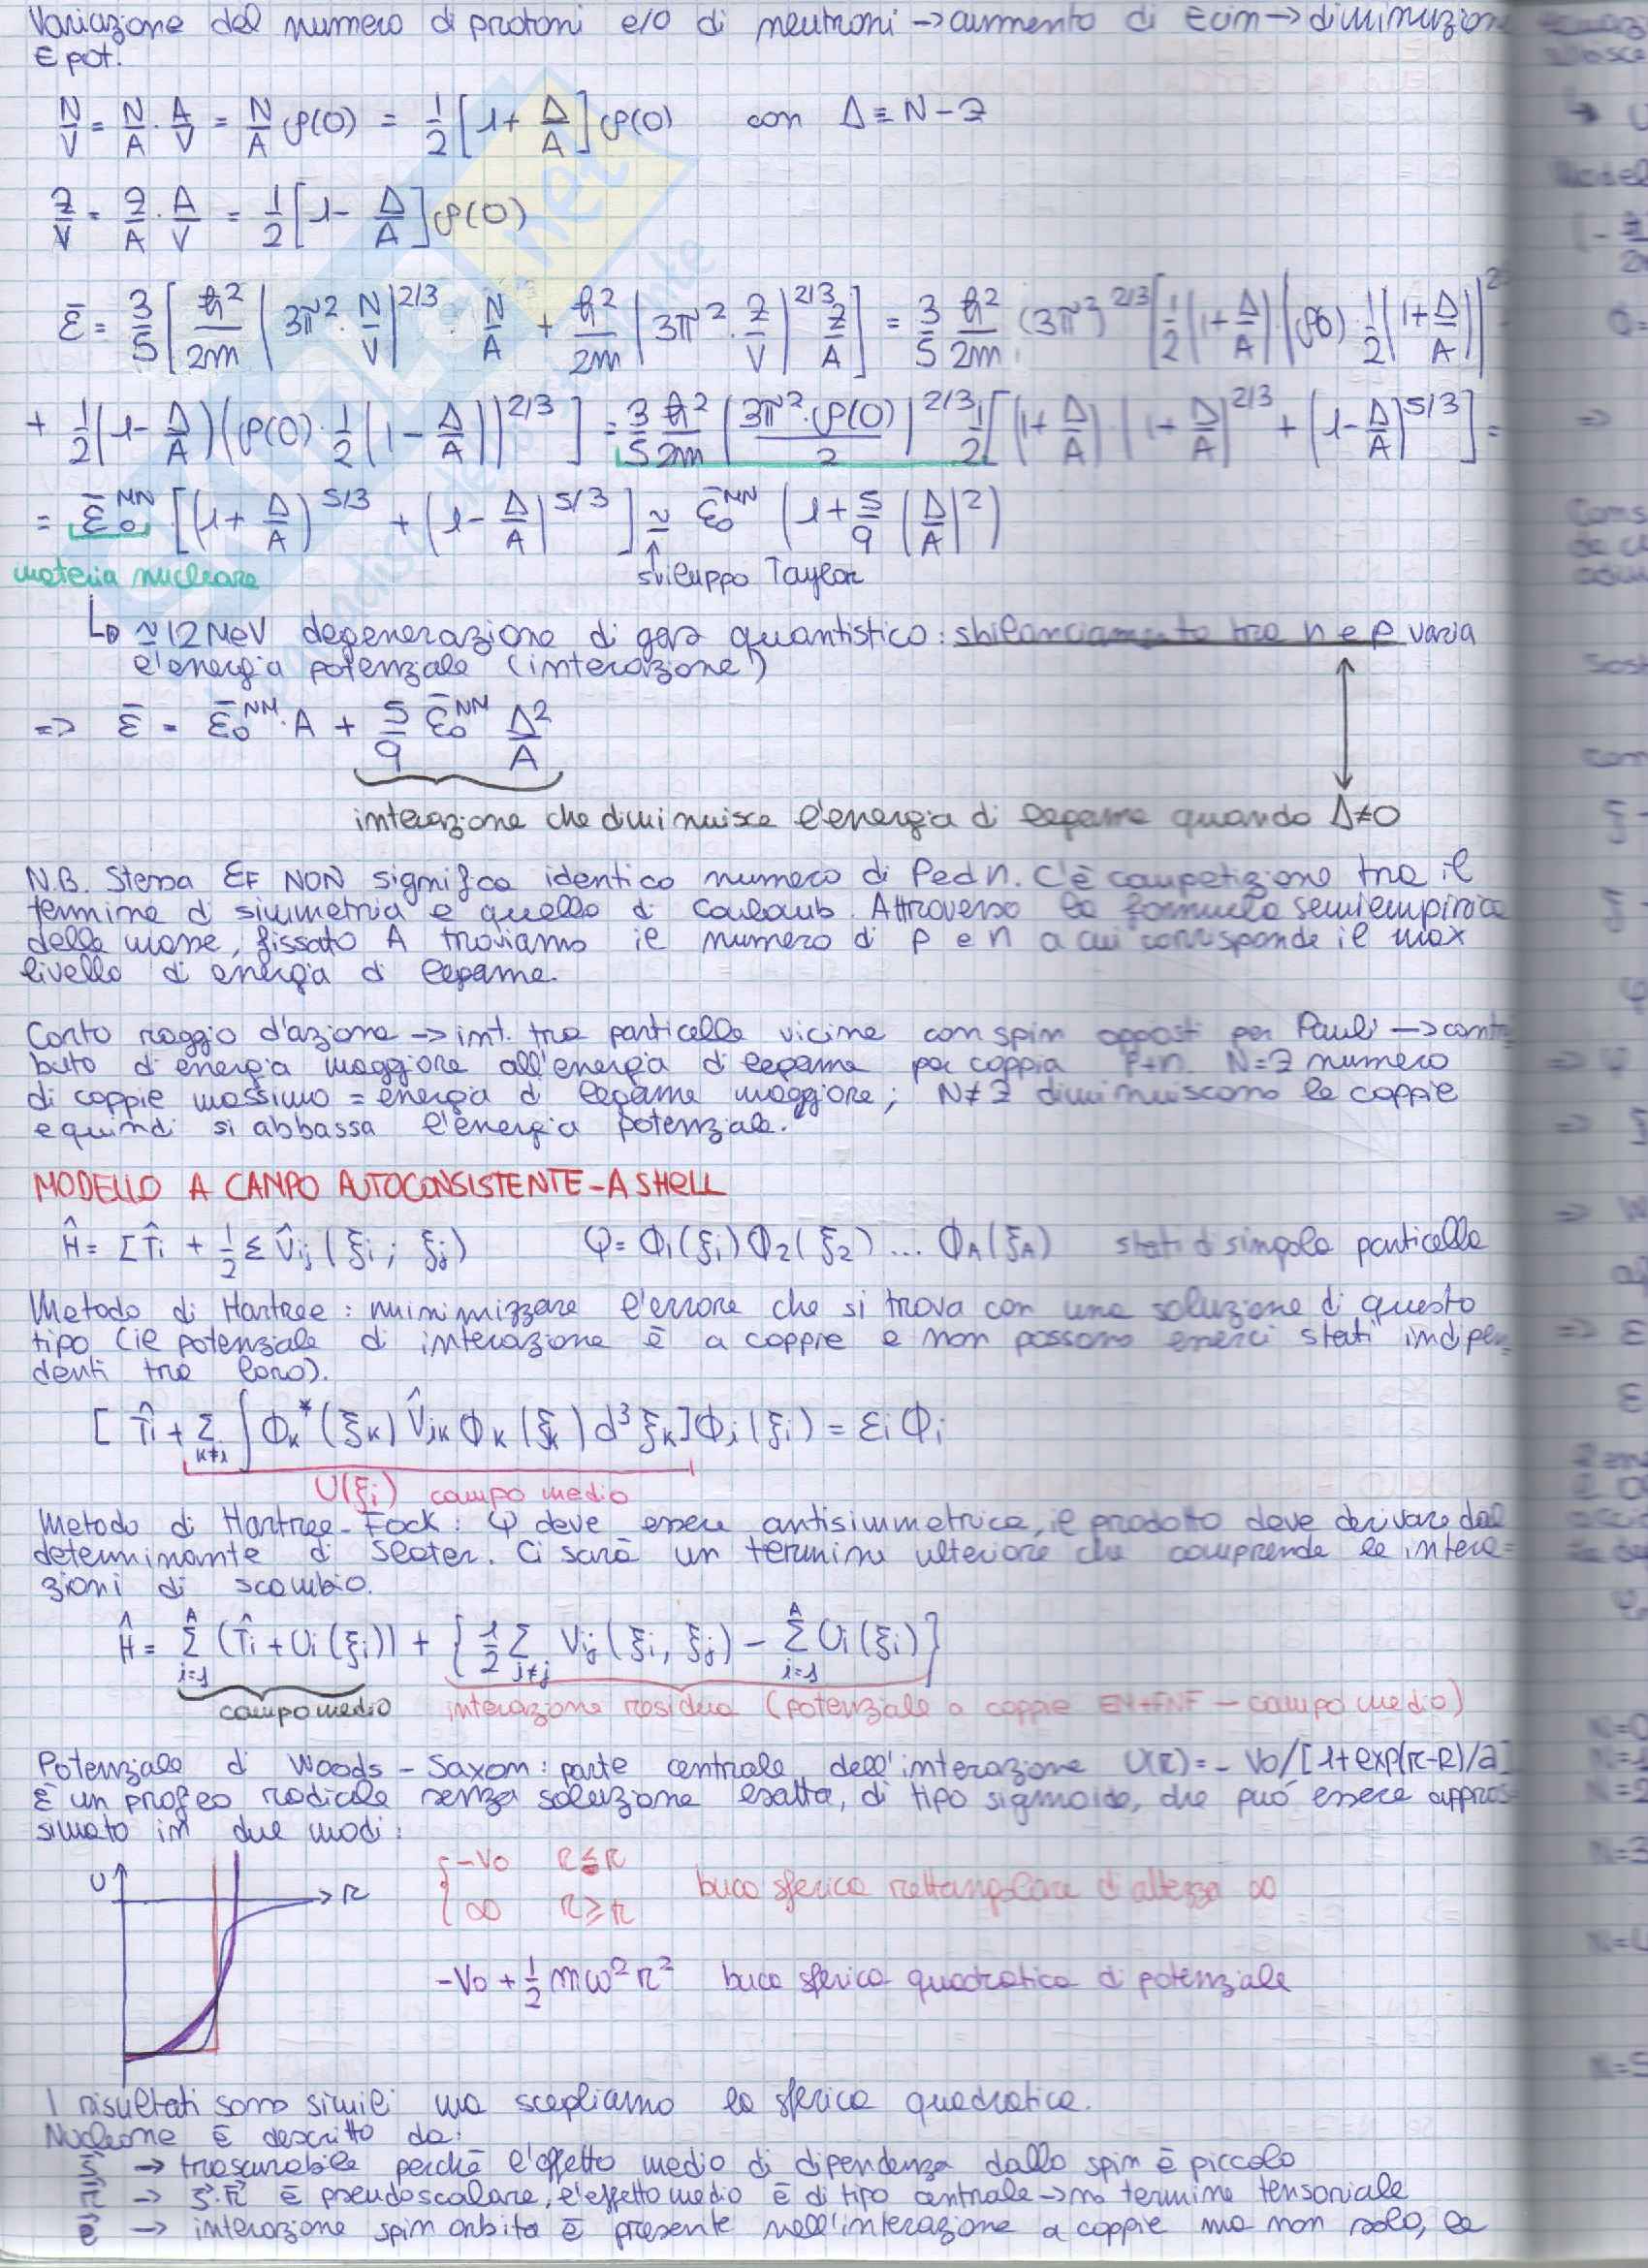 Variazione del numero di protoni e/o di neutroni → aumento di Ecin → diminuzione
E pot.
N/V = N/A · A/V = N/A ρ(0) = 1/2 [1 + Δ/A] ρ(0) con Δ ≡ N - Z
Z/V = Z/A · A/V = 1/2 [1 - Δ/A] ρ(0)
ε̄ = 3/5 [ ħ²/2m (3π² · N/V)^2/3 · N/A + ħ²/2m (3π² · Z/V)^2/3 Z/A ] = 3/5 ħ²/2m (3π²)^2/3 [ 1/2 (1 + Δ/A) (ρ(0) · 1/2 (1 + Δ/A))^2/3
+ 1/2 (1 - Δ/A) (ρ(0) · 1/2 (1 - Δ/A))^2/3 ] = 3/5 ħ²/2m (3π² · ρ(0)/2)^2/3 1/2 [ (1 + Δ/A) (1 + Δ/A)^2/3 + (1 - Δ/A)^5/3 ] =
= ε̄₀^NN [ (1 + Δ/A)^5/3 + (1 - Δ/A)^5/3 ] ≃ ε̄₀^NN (1 + 5/9 (Δ/A)²)
materia nucleare sviluppo Taylor
↳ ≃ 12 MeV degenerazione di gas quantistico: sbilanciamento tra n e p varia
l'energia potenziale (interazione)
=> ε̄ = ε̄₀^NM · A + 5/9 ε̄₀^NM Δ²/A
interazione che diminuisce l'energia di legame quando Δ≠0
N.B. Stessa EF NON significa identico numero di P ed n. C'è competizione tra il
termine di simmetria e quello di Coulomb. Attraverso la formula semiempirica
delle masse, fissato A troviamo il numero di p e n a cui corrisponde il max
livello di energia di legame.
Corto raggio d'azione → int. tra particelle vicine con spin opposti per Pauli → contri
buto di energia maggiore all'energia di legame per coppia P+n. N=Z numero
di coppie massimo = energia di legame maggiore; N≠Z diminuiscono le coppie
e quindi si abbassa l'energia potenziale.
MODELLO A CAMPO AUTOCONSISTENTE - A SHELL
Ĥ = ΣT̂i + 1/2 Σ V̂ij (ξi ; ξj) Ψ = Φ1(ξ1) Φ2(ξ2) ... ΦA(ξA) stati di singola particella
Metodo di Hartree: minimizzare l'errore che si trova con una soluzione di questo
tipo (il potenziale di interazione è a coppie e non possono esserci stati indipen
denti tra loro).
[ T̂i + Σ k≠i ∫ Φk*(ξk) V̂ik Φk (ξk) d³ξk ] Φi (ξi) = εi Φi
U(ξi) campo medio
Metodo di Hartree-Fock: Ψ deve essere antisimmetrica, il prodotto deve derivare dal
determinante di Slater. Ci sarà un termine ulteriore che comprende le intera=
zioni di scambio.
Ĥ = Σ i=1 A (T̂i + Ui (ξi)) + { 1/2 Σ i≠j Vij (ξi, ξj) - Σ i=1 A Ui (ξi) }
campo medio interazione residua (potenziale a coppie EN+FNF - campo medio)
Potenziale di Woods - Saxon: parte centrale dell'interazione U(r) = - V0/[1+exp(r-R)/a]
È un profilo radicale senza soluzione esatta, di tipo sigmoide, che può essere appros
simato in due modi:
U r
{ -V0 r ≤ R
∞ r ≥ R buca sferica rettangolare di altezza ∞
-V0 + 1/2 mω²r² buca sferica quadratica di potenziale
I risultati sono simili ma scegliamo la sferica quadratica.
Nucleone è descritto da:
s⃗ → trascurabile perchè l'effetto medio di dipendenza dallo spin è piccolo
r⃗ → s⃗·r⃗ è pseudoscalare, l'effetto medio è di tipo centrale → no termine tensoriale
ℓ⃗ → interazione spin orbita è presente nell'interazione a coppie ma non solo, la